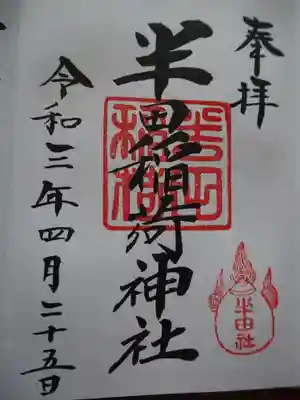 奉拝
半田稲荷神社
半田稲荷
半田社
令和三年四月二十五日